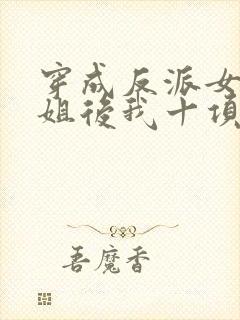 穿成反派女
姐後我十項
吾魔香